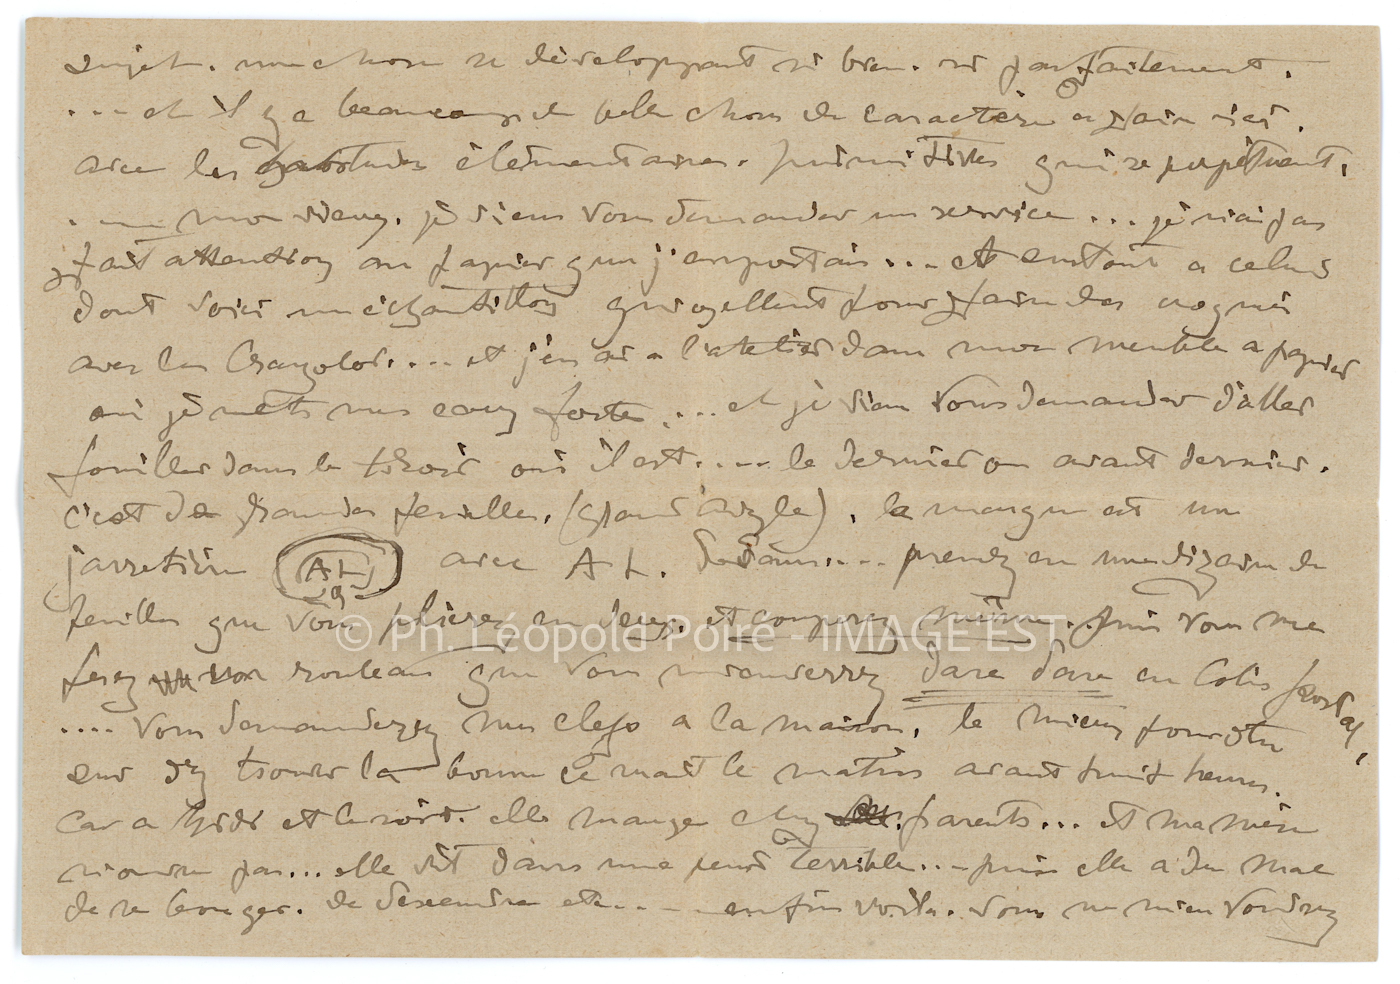 sujet. une chose se développant si bien. si parfaitement.
... et il y a beaucoup de belles choses de caractère a faire ici.
avec les habitudes élémentaires. primitives qui se perpétuent.
. — mon vieux. je viens vous demander un service ... je n'ai pas
fait attention au papier que j'emportais ... et en tout a celui
dont voici un échantillon qui excellent pour faire des croquis
avec les Crayolor. ... et j'en ai a l'atelier dans mon meuble a papier
ou je mets mes eaux fortes. ... et je viens vous demander d'aller
fouiller dans le tiroir où il est. ... le dernier ou avant dernier.
c'est de grandes feuilles. (grand aigle). la marque est une
jarretière AL avec A L. dedans. ... prenez en une dizaine de
feuilles que vous plierez en deux. et couperez même. puis vous me
ferez un rouleau que vous m'enverrez dare dare en Colis postal.
.... vous demanderez mes clefs a la maison. le mieux pour être
sur d'y trouver la bonne ce serait le matin avant huit heures.
car a midi et le soir. elle mange chez ses parents ... et ma mère
n'ouvre pas ... elle vit dans une peur terrible ... puis elle a du mal
de se bouger. de descendre etc. ... — enfin voila. vous ne m'en voudrez
© Ph. Léopold Poiré - IMAGE EST